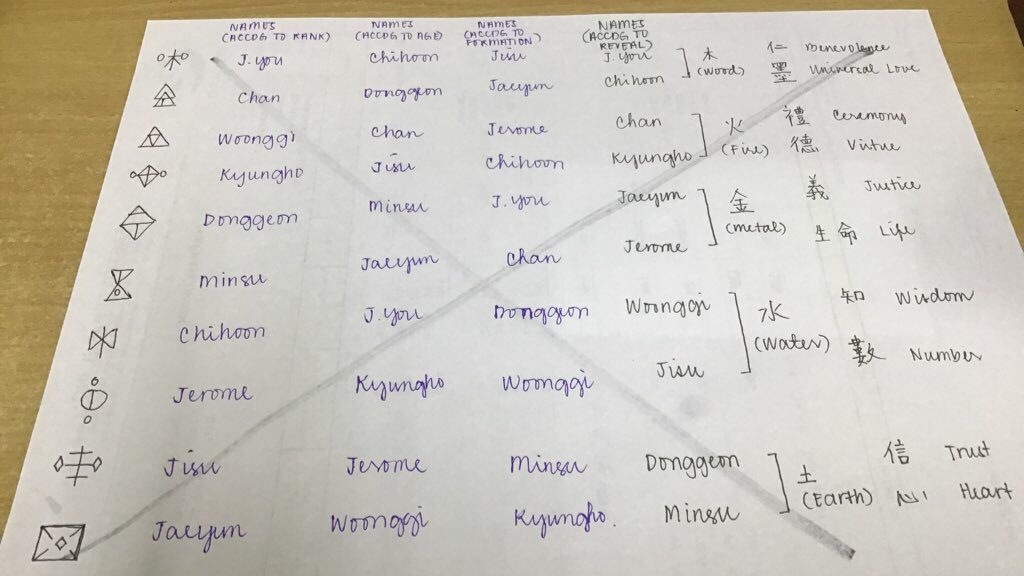 NAMES (ACCDG TO RANK) NAMES (ACCDG TO AGE) NAMES (ACCDG TO FORMATION) NAMES (ACCDG TO REVEAL)
J.You Chihoon Jisu J.You 木 (Wood) 仁 Benevolence
Chan Donggeon Jaeyun Chihoon 墨 Universal Love
Woonggi Chan Jerome Chan 火 (Fire) 禮 Ceremony
Kyungho Jisu Chihoon Kyungho 德 Virtue
Donggeon Minsu J.You Jaeyun 金 (metal) 義 Justice
Minsu Jaeyun Chan Jerome 生命 Life
Chihoon J.You Donggeon Woonggi 水 (Water) 知 Wisdom
Jerome Kyungho Woonggi Jisu 數 Number
Jisu Jerome Minsu Donggeon 土 (Earth) 信 Trust
Jaeyun Woonggi Kyungho. Minsu 心 Heart